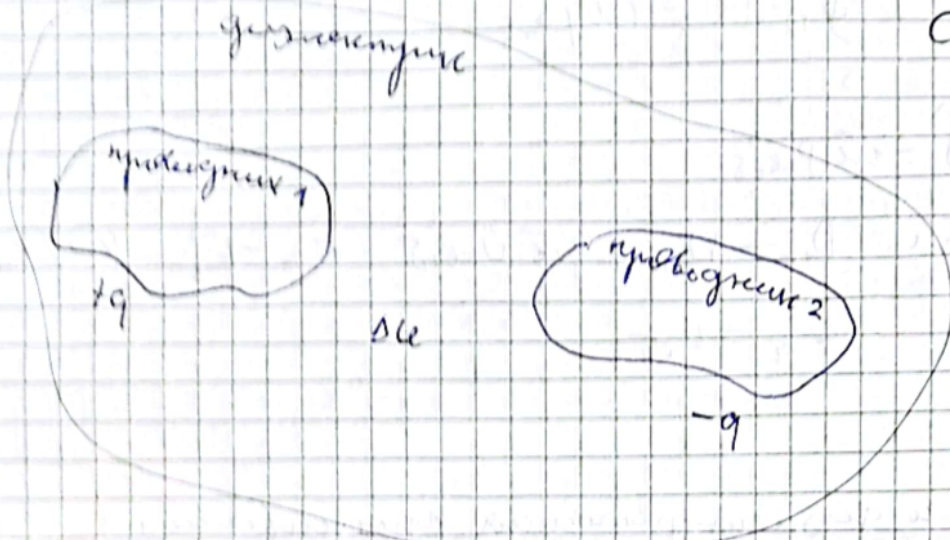 диэлектрик
C
проводник 1
проводник 2
+q
Δφ
-q